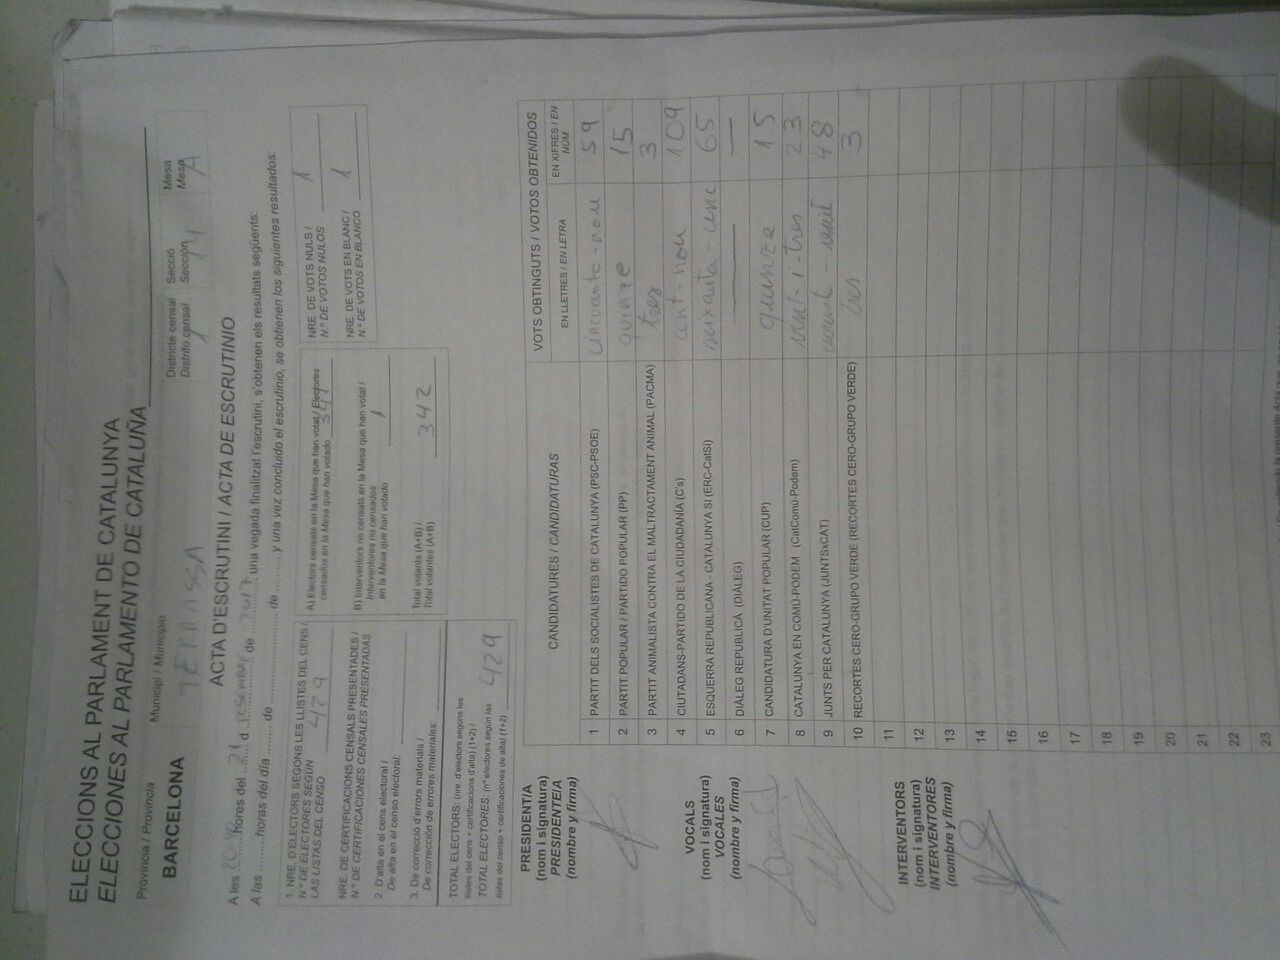 ELECCIONS AL PARLAMENT DE CATALUNYA
ELECCIONES AL PARLAMENTO DE CATALUÑA
Província / Provincia
BARCELONA
Municipi / Municipio
TERRASSA
Districte censal
Distrito censal
1
Secció
Sección
14
Mesa
Mesa
A
ACTA D'ESCRUTINI / ACTA DE ESCRUTINIO
A les hores del 21 d desembre de 2017, una vegada finalitzat l'escrutini, s'obtenen els resultats següents:
A las horas del día de de y una vez concluido el escrutinio, se obtienen los siguientes resultados:
1. NRE. D'ELECTORS SEGONS LES LLISTES DEL CENS /
N.º DE ELECTORES SEGÚN
LAS LISTAS DEL CENSO 429
NRE. DE CERTIFICACIONS CENSALS PRESENTADES /
N.º DE CERTIFICACIONES CENSALES PRESENTADAS
2. D'alta en el cens electoral /
De alta en el censo electoral:
3. De correcció d'errors materials /
De corrección de errores materiales:
TOTAL ELECTORS: (nre. d'electors segons les
llistes del cens + certificacions d'alta) (1+2) /
TOTAL ELECTORES: (nº electores según las
listas del censo + certificaciones de alta) (1+2) 429
A) Electors censats en la Mesa que han votat / Electores
censados en la Mesa que han votado 341
B) Interventors no censats en la Mesa que han votat /
Interventores no censados
en la Mesa que han votado 1
Total votants (A+B) /
Total votantes (A+B) 342
NRE. DE VOTS NULS /
N.º DE VOTOS NULOS 1
NRE. DE VOTS EN BLANC /
N.º DE VOTOS EN BLANCO 1
CANDIDATURES / CANDIDATURAS
VOTS OBTINGUTS / VOTOS OBTENIDOS
EN LLETRES / EN LETRA
EN XIFRES / EN NÚM.
1 PARTIT DELS SOCIALISTES DE CATALUNYA (PSC-PSOE) cincuanta-nou 59
2 PARTIT POPULAR / PARTIDO POPULAR (PP) quinze 15
3 PARTIT ANIMALISTA CONTRA EL MALTRACTAMENT ANIMAL (PACMA) tres 3
4 CIUTADANS-PARTIDO DE LA CIUDADANÍA (C's) cent-nou 109
5 ESQUERRA REPUBLICANA - CATALUNYA SÍ (ERC-CatSí) seixanta cinc 65
6 DIÀLEG REPUBLICÀ (DIÀLEG) — —
7 CANDIDATURA D'UNITAT POPULAR (CUP) quinze 15
8 CATALUNYA EN COMÚ-PODEM (CatComú-Podem) vint-i-tres 23
9 JUNTS PER CATALUNYA (JUNTSxCAT) 48
10 RECORTES CERO-GRUPO VERDE (RECORTES CERO-GRUPO VERDE) tres 3
11
12
13
14
15
16
17
18
19
20
21
22
23
PRESIDENT/A
(nom i signatura)
PRESIDENTE/A
(nombre y firma)
VOCALS
(nom i signatura)
VOCALES
(nombre y firma)
INTERVENTORS
(nom i signatura)
INTERVENTORES
(nombre y firma)